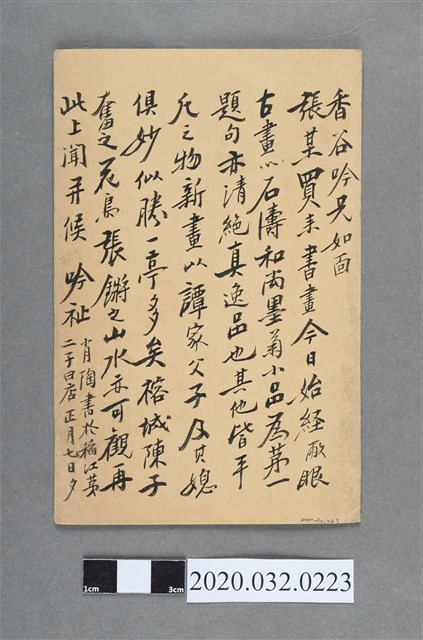 香谷吟兄如面
張某買来書畫今日始経敝眼
古畫以石濤和尚墨菊小品為第一
題句亦清絶真逸品也其他皆平
凡之物新畫以譚家父子及其媳
俱妙似勝一亭多矣榕城陳子
奮之花鳥張鏘之山水亦可觀再
此上聞并候 吟祉
陶書於稲江第
二子曰店正月七日夕
1cm
3cm
2020.032.0223